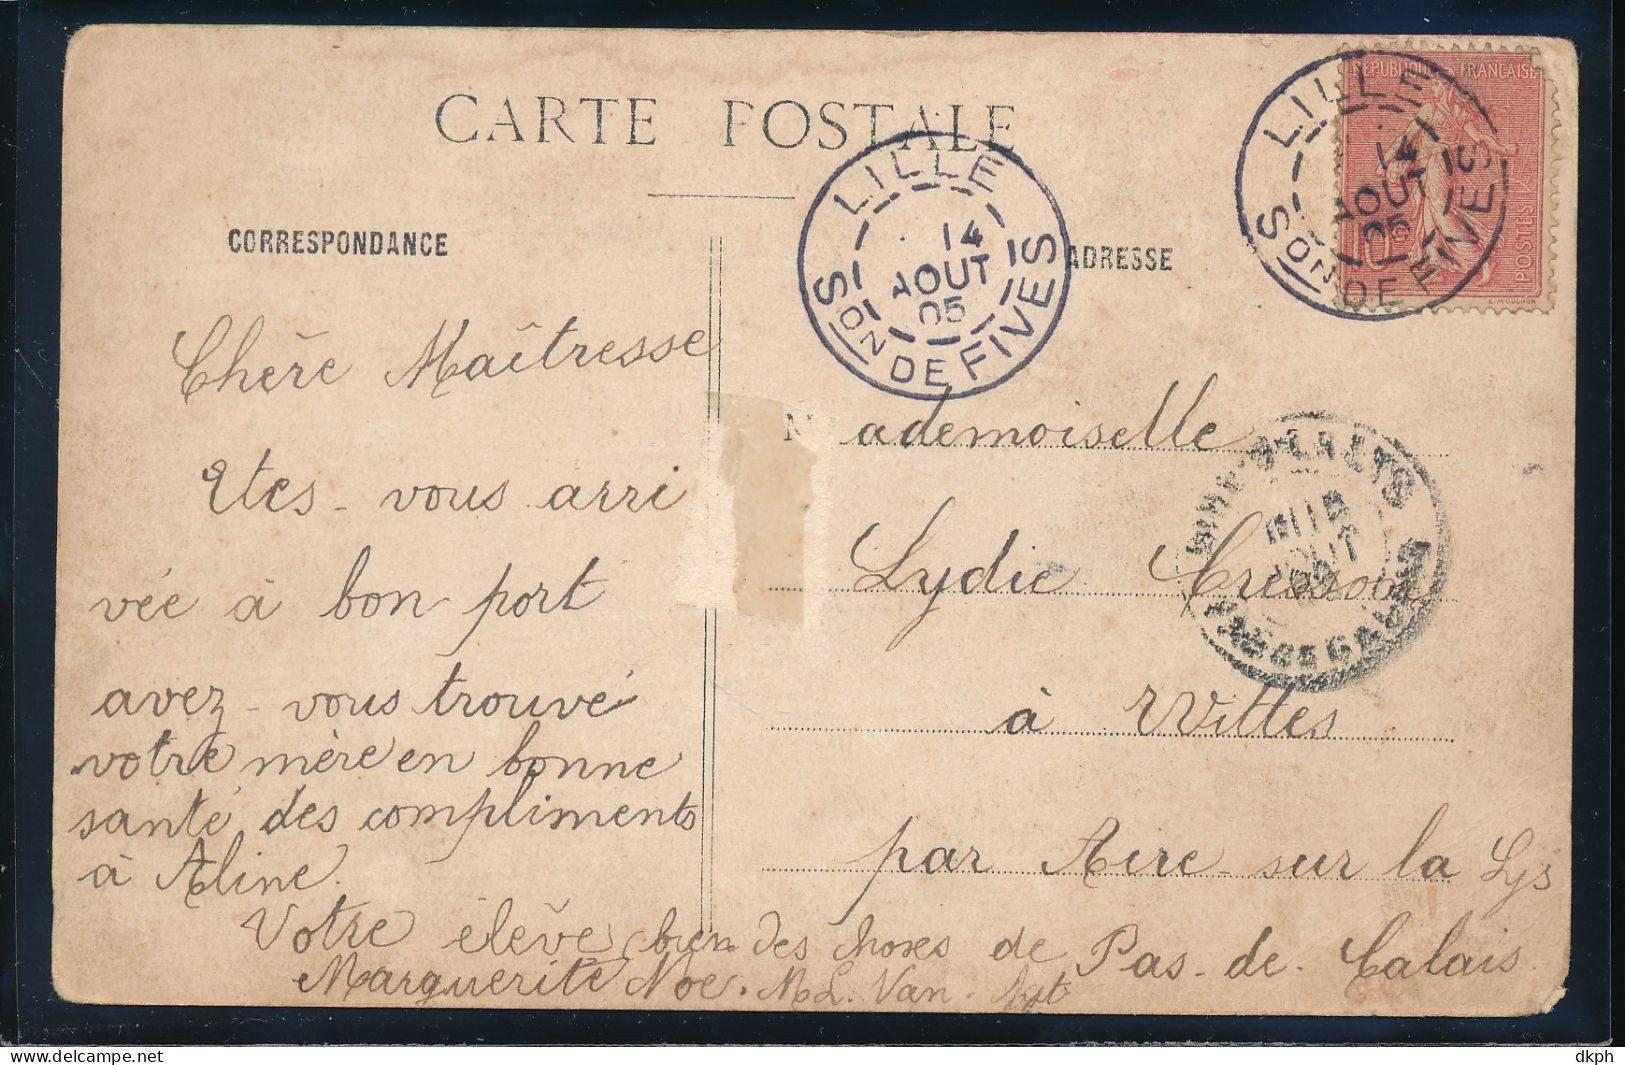 CARTE POSTALE
CORRESPONDANCE
ADRESSE
RÉPUBLIQUE FRANÇAISE
POSTES
E. MOUCHON
LILLE
14
AOUT
05
SON DE FIVES
LILLE
14
AOUT
05
SON DE FIVES
Chère Maîtresse
Etes-vous arri
vée à bon port
avez-vous trouvé
votre mère en bonne
santé des compliments
à Aline.
Votre élève
Marguerite Noe.
bien des choses de
M L. Van
Mademoiselle
Lydie
à Wittes
par Aire-sur la Lys
Pas-de-Calais
dkph